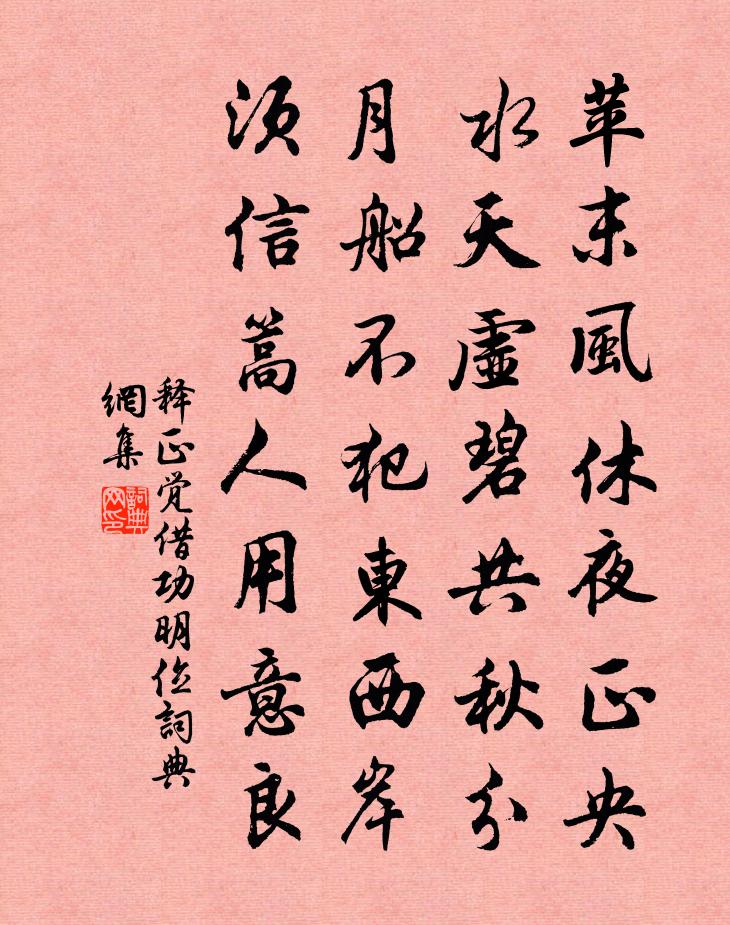 苹末風休夜正央
水天虛碧共秋分
月船不犯東西岸
须信篙人用意良
释正觉借功明位詞典
網集
詞典网印